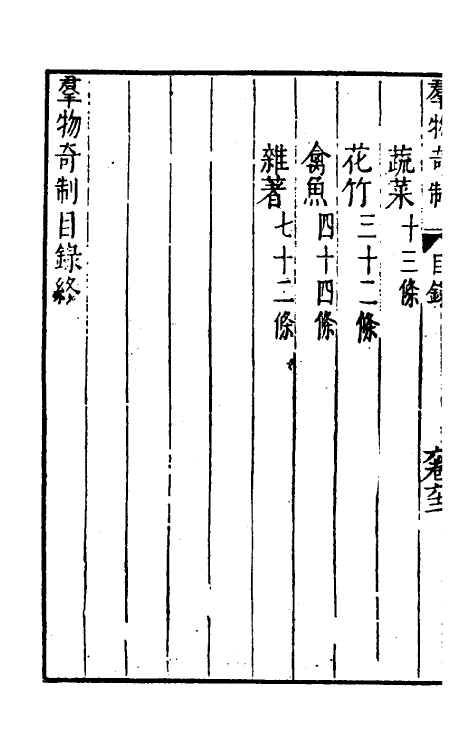 羣物奇制
目錄
蔬菜十三條
花竹三十二條
禽魚四十四條
雜著七十二條
羣物奇制目錄終